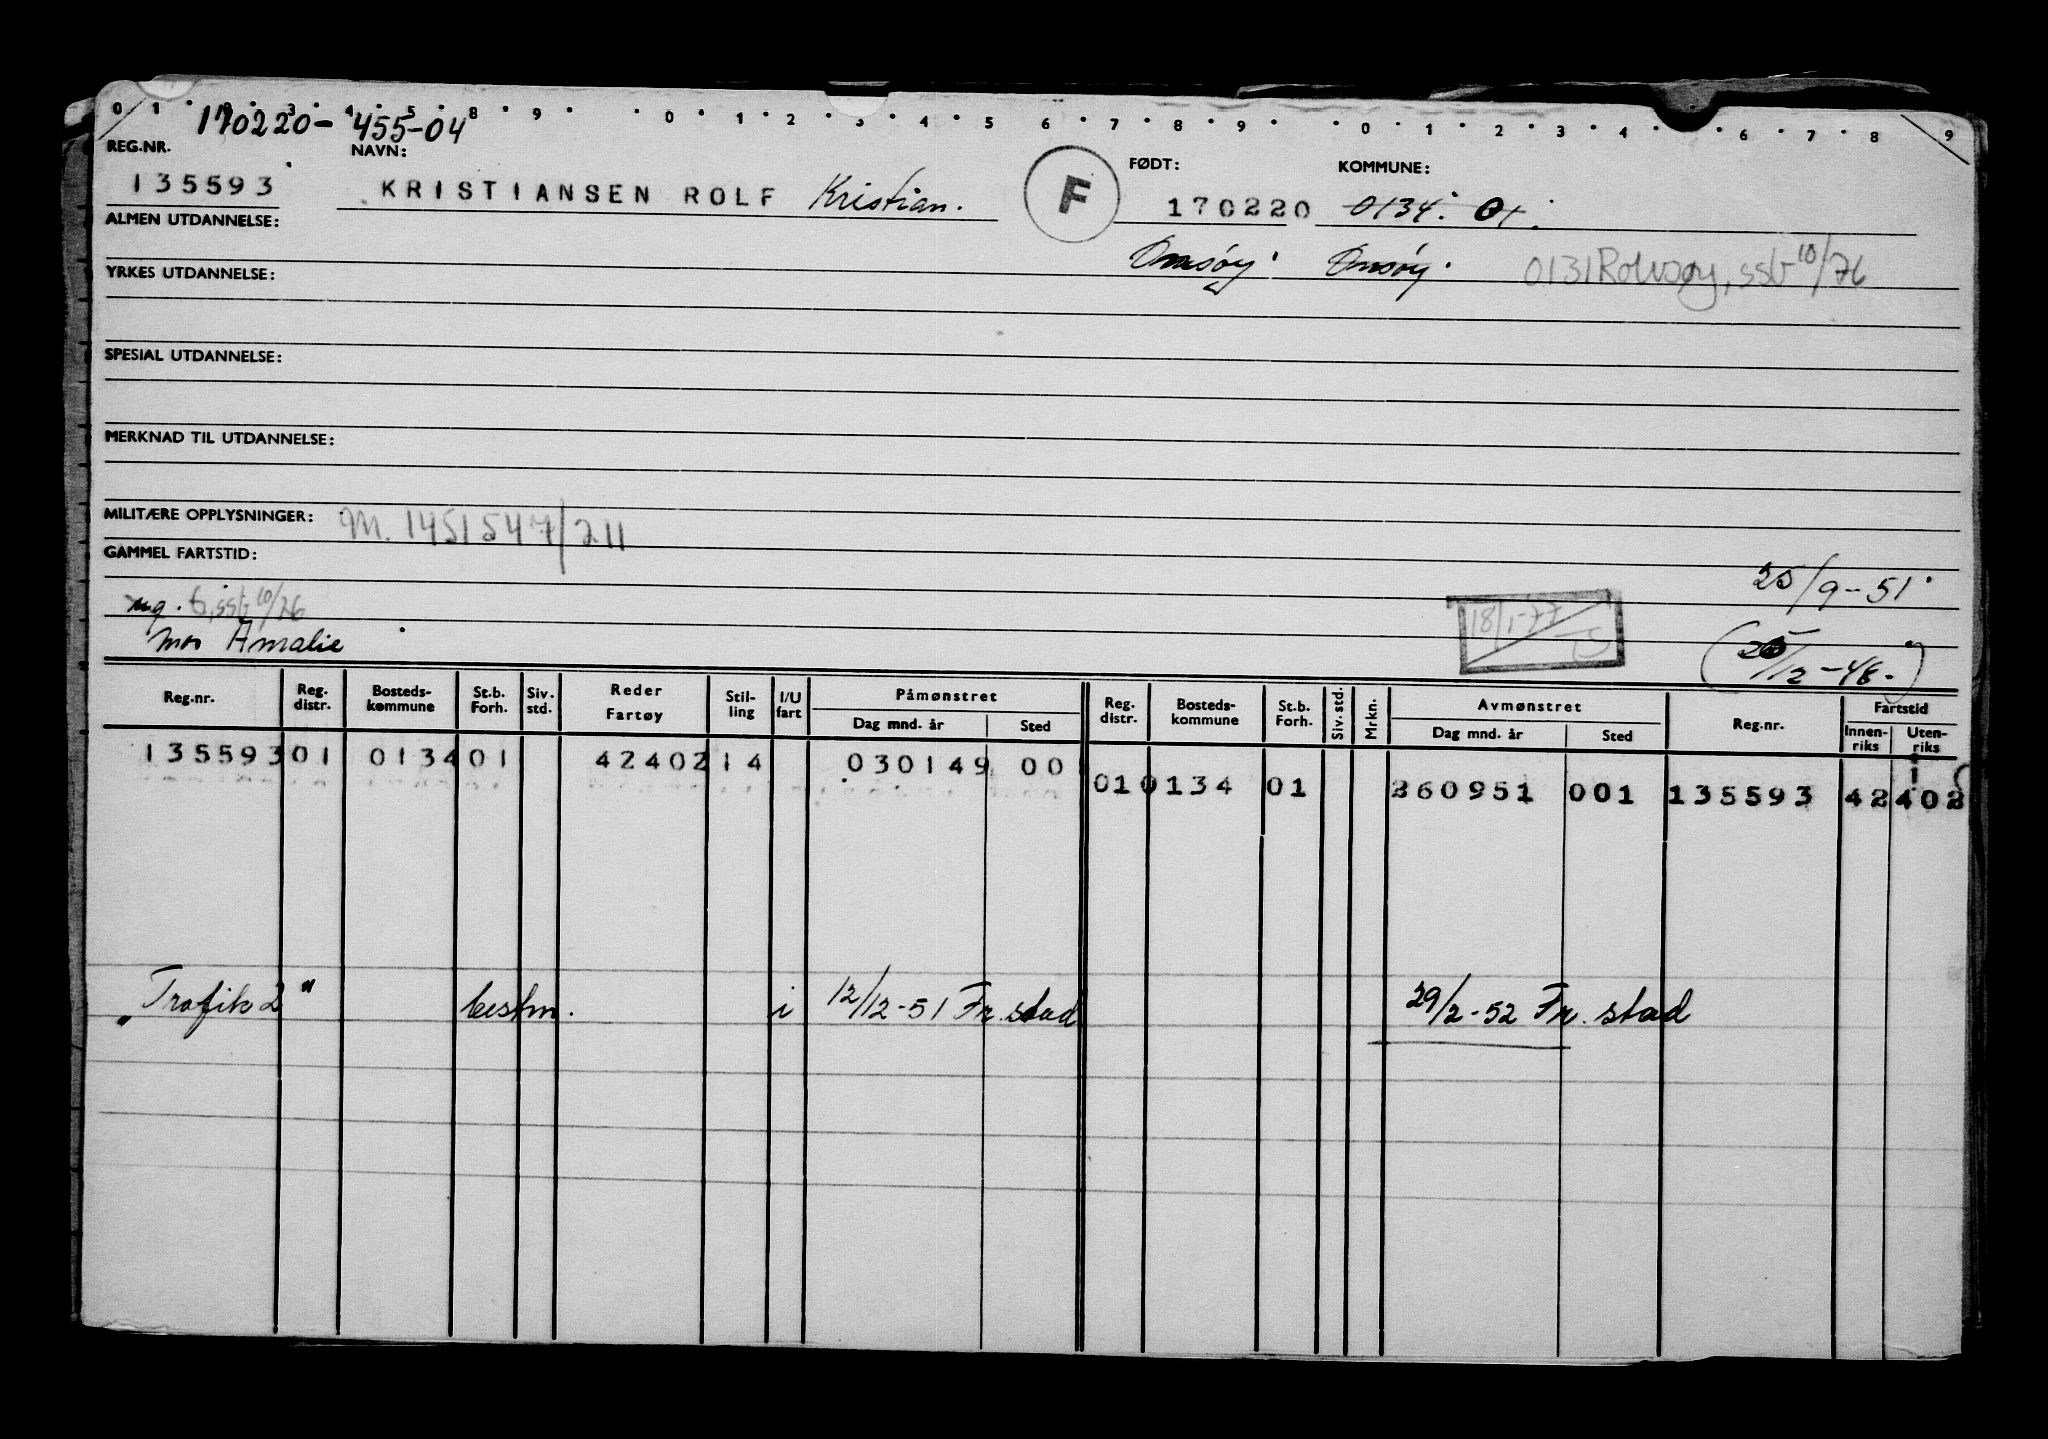 0 1 2 3 4 5 8 9 0 1 2 3 4 5 6 7 8 9 0 1 2 3 4 6 7 8 9
170220-455-04
REG.NR. NAVN: FØDT: KOMMUNE:
135593 KRISTIANSEN ROLF Kristian. F 170220 0134. 01.
ALMEN UTDANNELSE:
Onsøy Onsøy. 0131 Rolvsøy, ssb 10/76
YRKES UTDANNELSE:
SPESIAL UTDANNELSE:
MERKNAD TIL UTDANNELSE:
MILITÆRE OPPLYSNINGER: M. 1451547/211
GAMMEL FARTSTID:
25/9-51
ug. G, ssb 10/76 18/1-77
mor Amalie (20/12-48.)
Reg.nr. Reg. distr. Bosteds-kommune St.b. Forh. Siv. std. Reder Fartøy Stil-ling I/U fart Påmønstret Dag mnd. år Sted Reg. distr. Bosteds-kommune St.b. Forh. Siv. std. Mrkn. Avmønstret Dag mnd. år Sted Reg.nr. Fartstid Innen-riks Uten-riks
135593 01 0134 01 42402 14 030149 00
01 0134 01 260951 001 135593 42 402
"Trafik 2" bestm. i 12/12-51 Fr. stad 29/2-52 Fr. stad